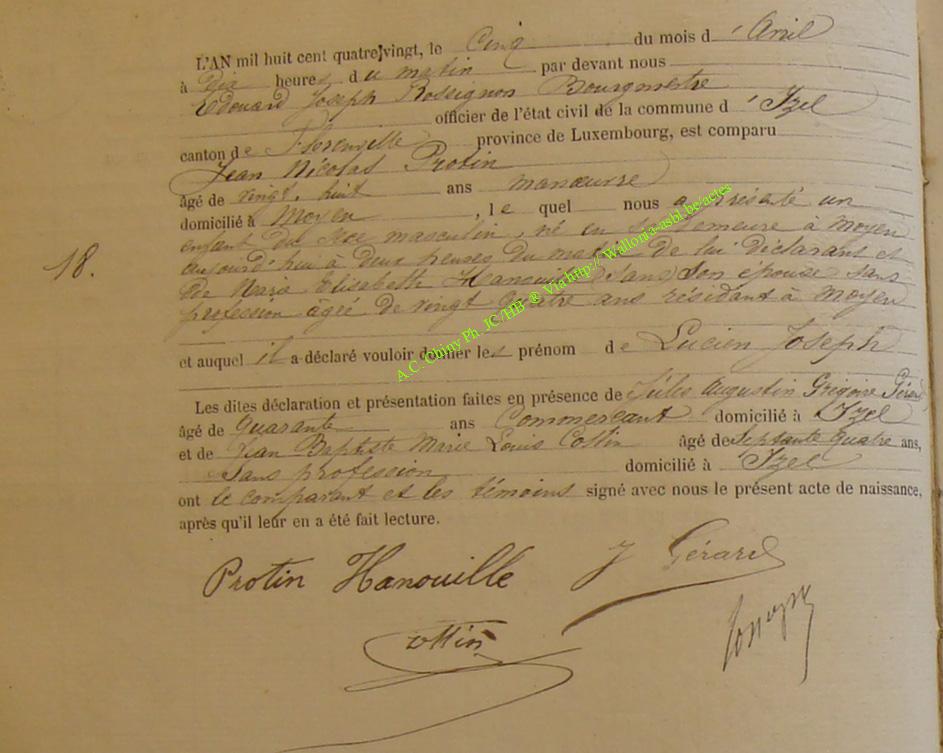 L'AN mil huit cent quatre-vingt, le Cinq du mois d'Avril
à dix heures du matin par devant nous
Edouard Joseph Rossignon Bourgmestre
officier de l'état civil de la commune d'Izel
canton de Florenville province de Luxembourg, est comparu
Jean Nicolas Protin
âgé de vingt huit ans manœuvre
domicilié à Moyen, le quel nous a présenté un
enfant du sexe masculin, né en sa demeure à Moyen
aujourd'hui à deux heures du matin de lui déclarant et
De Maria Elisabeth Hanouille (sans) Son épouse sans
profession âgée de vingt quatre ans résidant à Moyen
18.
et auquel il a déclaré vouloir donner les prénom de Lucien Joseph
Les dites déclaration et présentation faites en présence de Jules Augustin Grégoire Gérard
âgé de Quarante ans Commercant domicilié à Izel
et de Jean Baptiste Marie Louis Collin âgé de Septante quatre ans,
Sans profession domicilié à Izel
ont le comparant et les témoins signé avec nous le présent acte de naissance,
après qu'il leur en a été fait lecture.
Protin Hanouille J Gérard
A.C. Chiny Ph. JC/HB ® Via http://Wallonia-asbl.be/actes